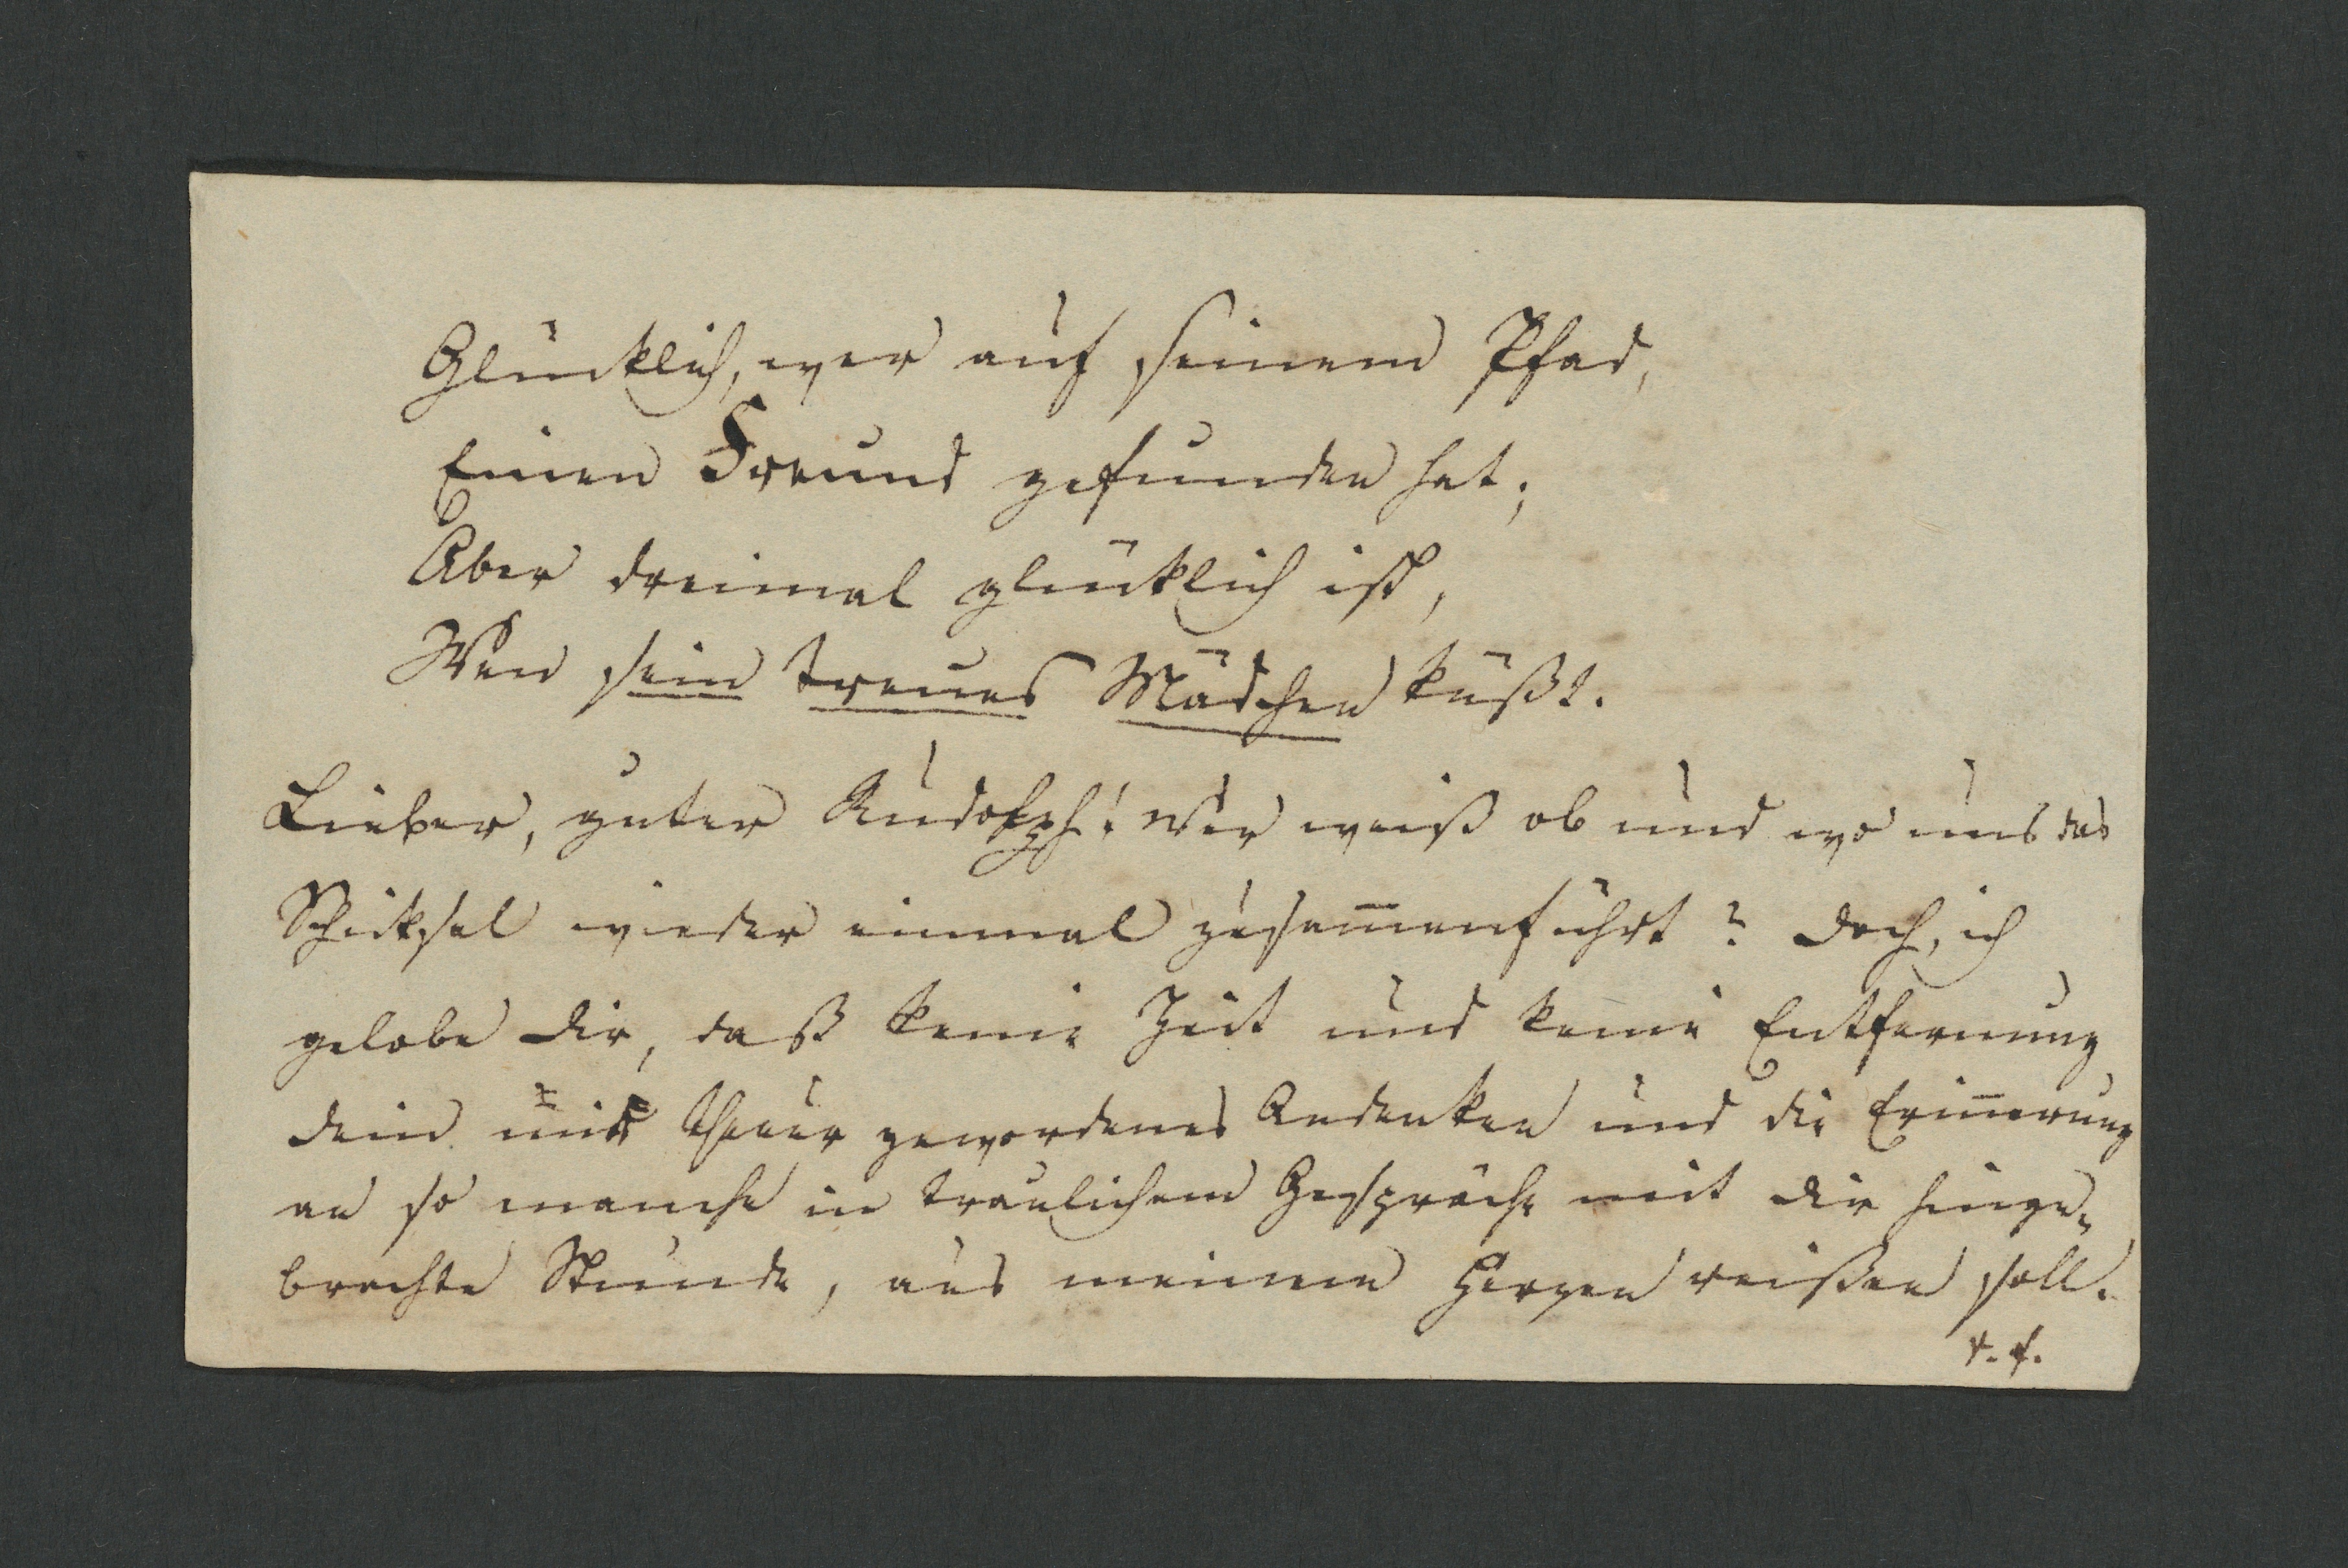 Glücklich, wer auf seinem Pfad,
Einen Freund gefunden hat;
Aber dreimal glücklich ist,
Wen sein treues Mädchen küßt.
Lieber, guter Rudolph! Wer weiß ob und wo uns das
Schicksal wieder einmal zusam̅enführt? Doch, ich
gelobe Dir, daß keine Zeit und keine Entfernung
dein mir theuer gewordenes Andenken und die Erin̅erung
an so manche in traulichem Gespräche mit Dir hinge-
brachte Stunde, aus meinem Herzen reißen soll.